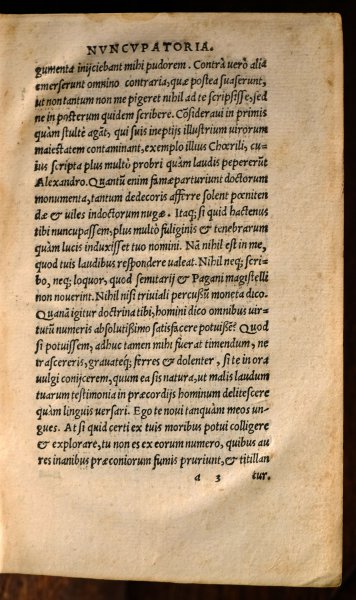 NVNCVPATORIA.
gumenta inijciebant mihi pudorem. Contrà uerò alia
emerserunt omnino contraria, quæ postea suaserunt,
ut non tantum non me pigeret nihil ad te scripsisse, sed
ne in posterum quidem scribere. Cõsideraui in primis
quàm stultè agãt, qui suis ineptijs illustrium uirorum
maiestatem contaminant, exemplo illius Chœrili, cu/
ius scripta plus multò probri quàm laudis pepererũt
Alexandro. Quantũ enim famæ parturiunt doctorum
monumenta, tantum dedecoris afferre solent pœniten
dæ & uiles indoctorum nugæ. Itaq; si quid hactenus
tibi nuncupassem, plus multò fuliginis & tenebrarum
quàm lucis induxisset tuo nomini. Nã nihil est in me,
quod tuis laudibus respondere ualeat. Nihil neq; scri/
bo, neq; loquor, quod semitarij & Pagani magistelli
non nouerint. Nihil nisi triuiali percussũ moneta dico.
Quanã igitur doctrina tibi, homini dico omnibus uir/
tutũ numeris absolutißimo satisfacere potuißẽ? Quod
si potuissem, adhuc tamen mihi fuerat timendum, ne
trascereris, grauateq; ferres & dolenter, si te in ora
uulgi conijcerem, quum ea sis natura, ut malis laudum
tuarum testimonia in præcordijs hominum delitescere
quàm linguis uersari. Ego te noui tanquàm meos un/
gues. At si quid certi ex tuis moribus potui colligere
& explorare, tu non es ex eorum numero, quibus au
res inanibus præconiorum fumis pruriunt, & titillan
a 3 tur.